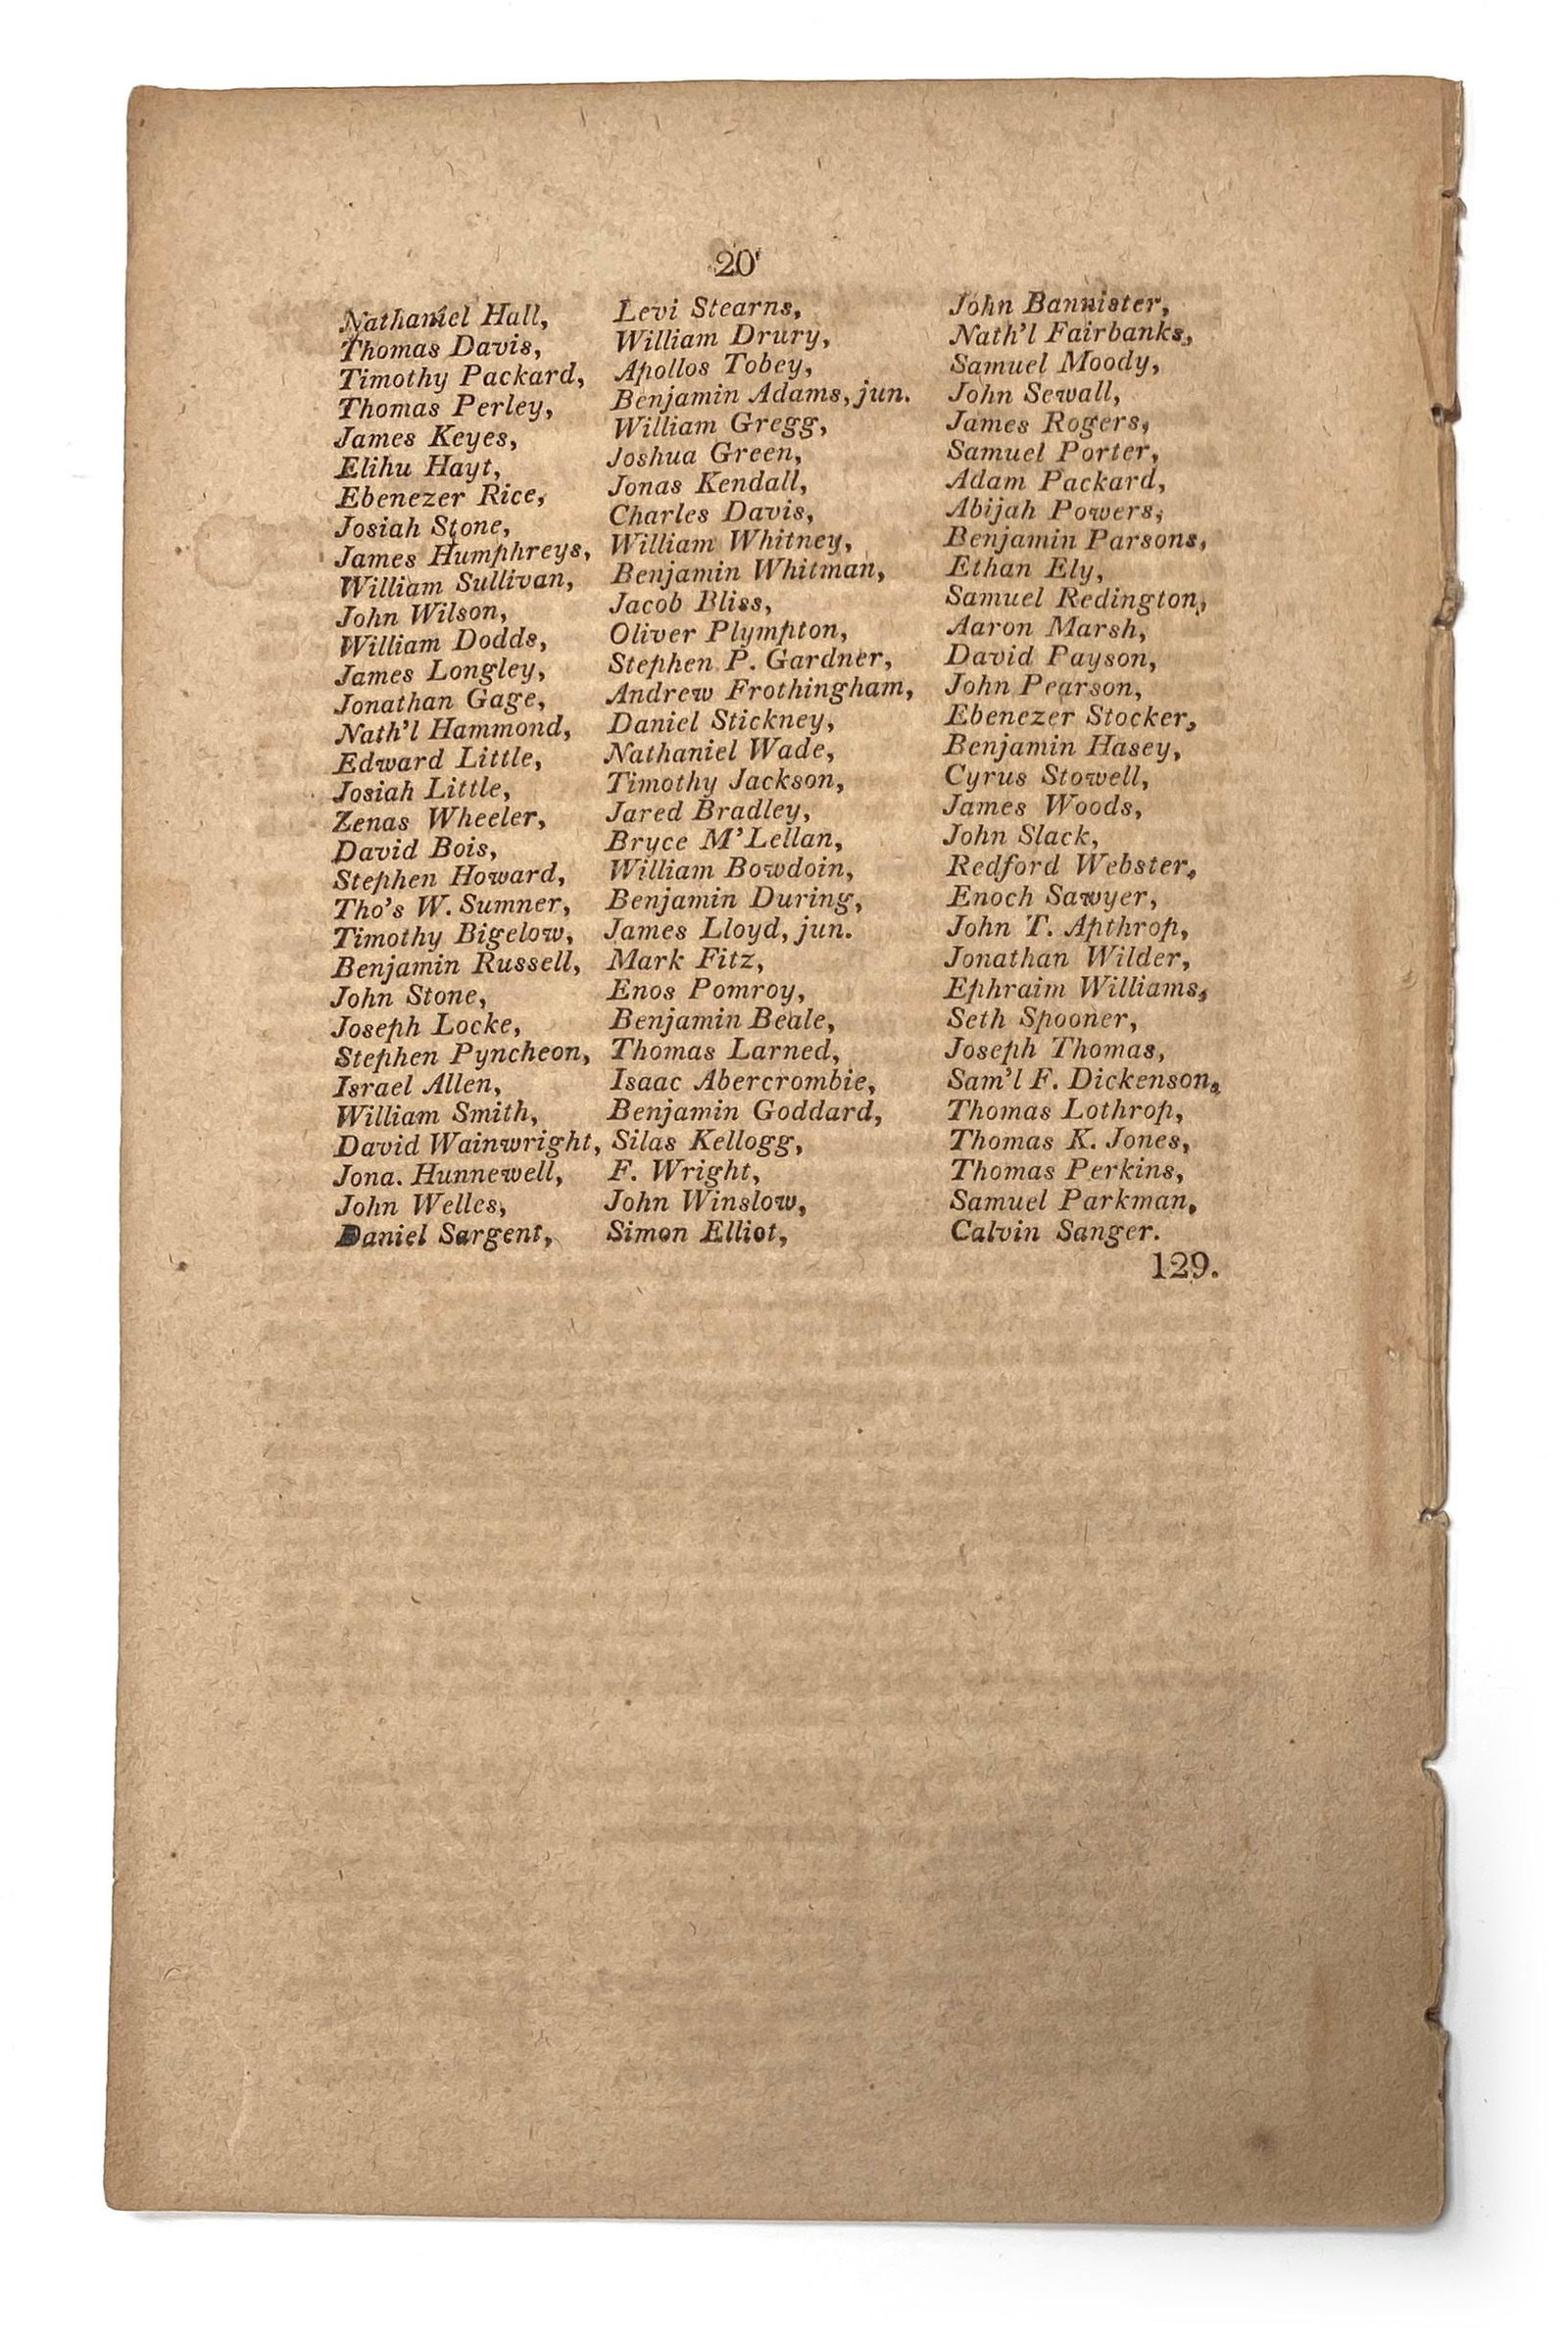 20
Nathaniel Hall,
Thomas Davis,
Timothy Packard,
Thomas Perley,
James Keyes,
Elihu Hayt,
Ebenezer Rice,
Josiah Stone,
James Humphreys,
William Sullivan,
John Wilson,
William Dodds,
James Longley,
Jonathan Gage,
Nath'l Hammond,
Edward Little,
Josiah Little,
Zenas Wheeler,
David Bois,
Stephen Howard,
Tho's W. Sumner,
Timothy Bigelow,
Benjamin Russell,
John Stone,
Joseph Locke,
Stephen Pyncheon,
Israel Allen,
William Smith,
David Wainwright,
Jona. Hunnewell,
John Welles,
Daniel Sargent,
Levi Stearns,
William Drury,
Apollos Tobey,
Benjamin Adams, jun.
William Gregg,
Joshua Green,
Jonas Kendall,
Charles Davis,
William Whitney,
Benjamin Whitman,
Jacob Bliss,
Oliver Plympton,
Stephen P. Gardner,
Andrew Frothingham,
Daniel Stickney,
Nathaniel Wade,
Timothy Jackson,
Jared Bradley,
Bryce M'Lellan,
William Bowdoin,
Benjamin During,
James Lloyd, jun.
Mark Fitz,
Enos Pomroy,
Benjamin Beale,
Thomas Larned,
Isaac Abercrombie,
Benjamin Goddard,
Silas Kellogg,
F. Wright,
John Winslow,
Simon Elliot,
John Bannister,
Nath'l Fairbanks,
Samuel Moody,
John Sewall,
James Rogers,
Samuel Porter,
Adam Packard,
Abijah Powers,
Benjamin Parsons,
Ethan Ely,
Samuel Redington,
Aaron Marsh,
David Payson,
John Pearson,
Ebenezer Stocker,
Benjamin Hasey,
Cyrus Stowell,
James Woods,
John Slack,
Redford Webster,
Enoch Sawyer,
John T. Apthrop,
Jonathan Wilder,
Ephraim Williams,
Seth Spooner,
Joseph Thomas,
Sam'l F. Dickenson,
Thomas Lothrop,
Thomas K. Jones,
Thomas Perkins,
Samuel Parkman,
Calvin Sanger.
129.